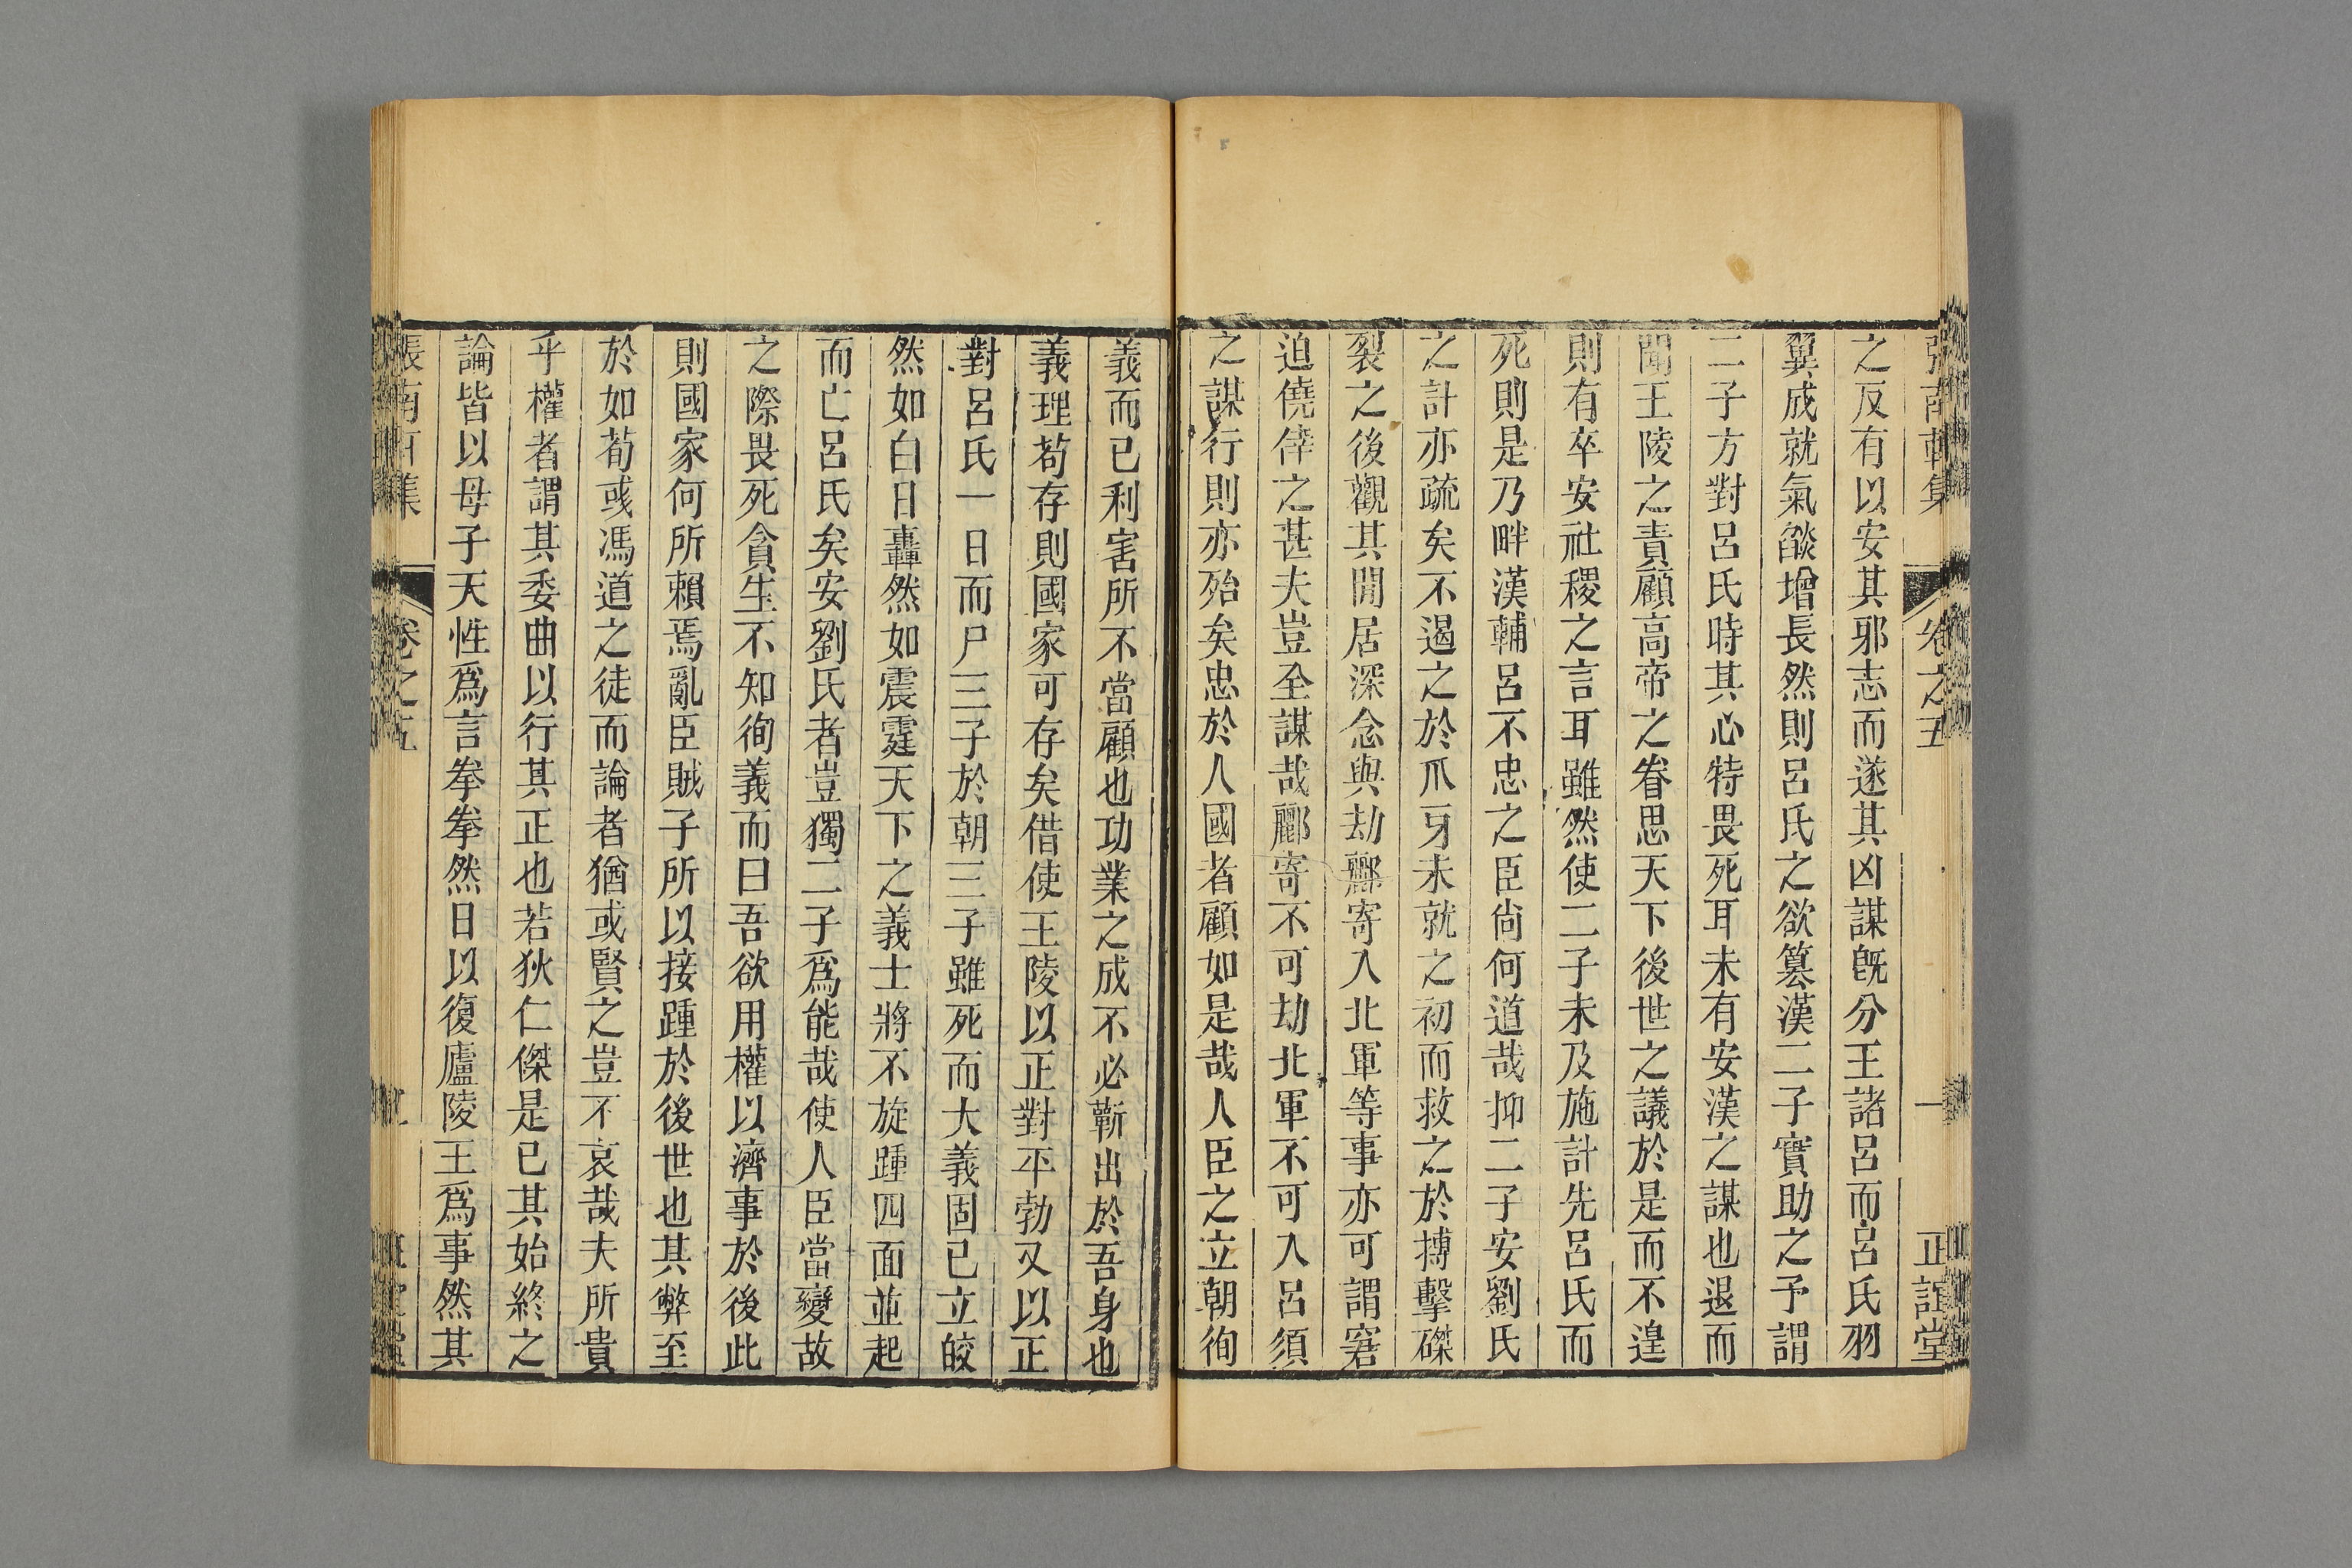 張南軒集 卷之五 一 正誼堂
之反有以安其邪志而遂其凶謀旣分王諸呂而呂氏羽
翼成就氣燄增長然則呂氏之欲篡漢二子實助之予謂
二子方對呂氏時其心特畏死耳未有安漢之謀也退而
聞王陵之責顧高帝之眷思天下後世之議於是而不遑
則有卒安社稷之言耳雖然使二子未及施計先呂氏而
死則是乃畔漢輔呂不忠之臣尙何道哉抑二子安劉氏
之計亦疏矣不過之於爪牙未就之初而救之於搏擊磔
裂之後觀其閒居深念與劫酈寄入北軍等事亦可謂窘
迫僥倖之甚夫豈全謀哉酈寄不可劫北軍不可入呂須
之謀行則亦殆矣忠於人國者顧如是哉人臣之立朝徇
義而已利害所不當顧也功業之成不必蘄出於吾身也
義理苟存則國家可存矣借使王陵以正對平勃又以正
對呂氏一日而尸三子於朝三子雖死而大義固已立皎
然如白日轟然如震霆天下之義士將不旋踵四面並起
而亡呂氏矣安劉氏者豈獨二子爲能哉使人臣當變故
之際畏死貪生不知徇義而曰吾欲用權以濟事於後此
則國家何所賴焉亂臣賊子所以接踵於後世也其弊至
於如荀彧馮道之徒而論者猶或賢之豈不哀哉夫所貴
乎權者謂其委曲以行其正也若狄仁傑是已其始終之
論皆以母子天性爲言拳拳然日以復廬陵王爲事然其
南 集 卷之五